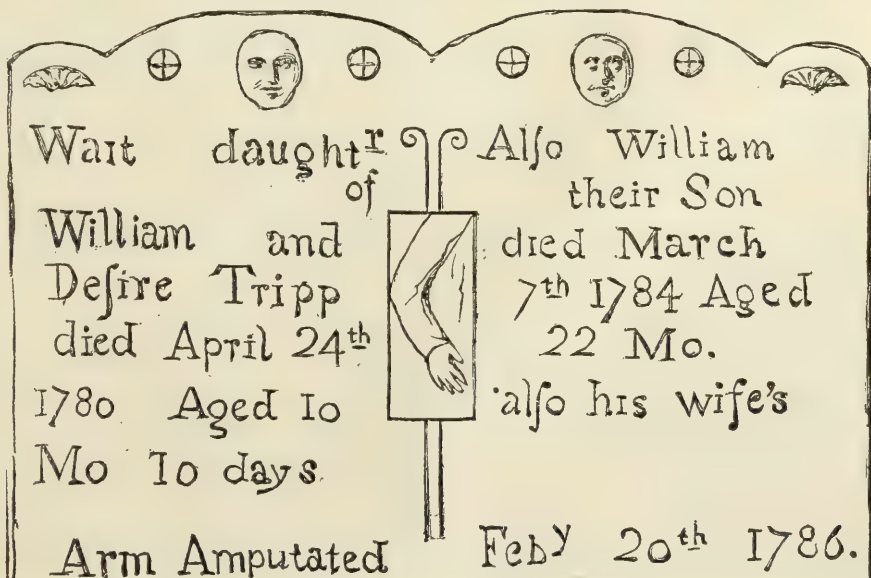 Wait daughtr
of
William and
Deſire Tripp
died April 24th
1780 Aged 10
Mo 10 days
Alſo William
their Son
died March
7th 1784 Aged
22 Mo.
alſo his wife's
Arm Amputated Feby 20th 1786.